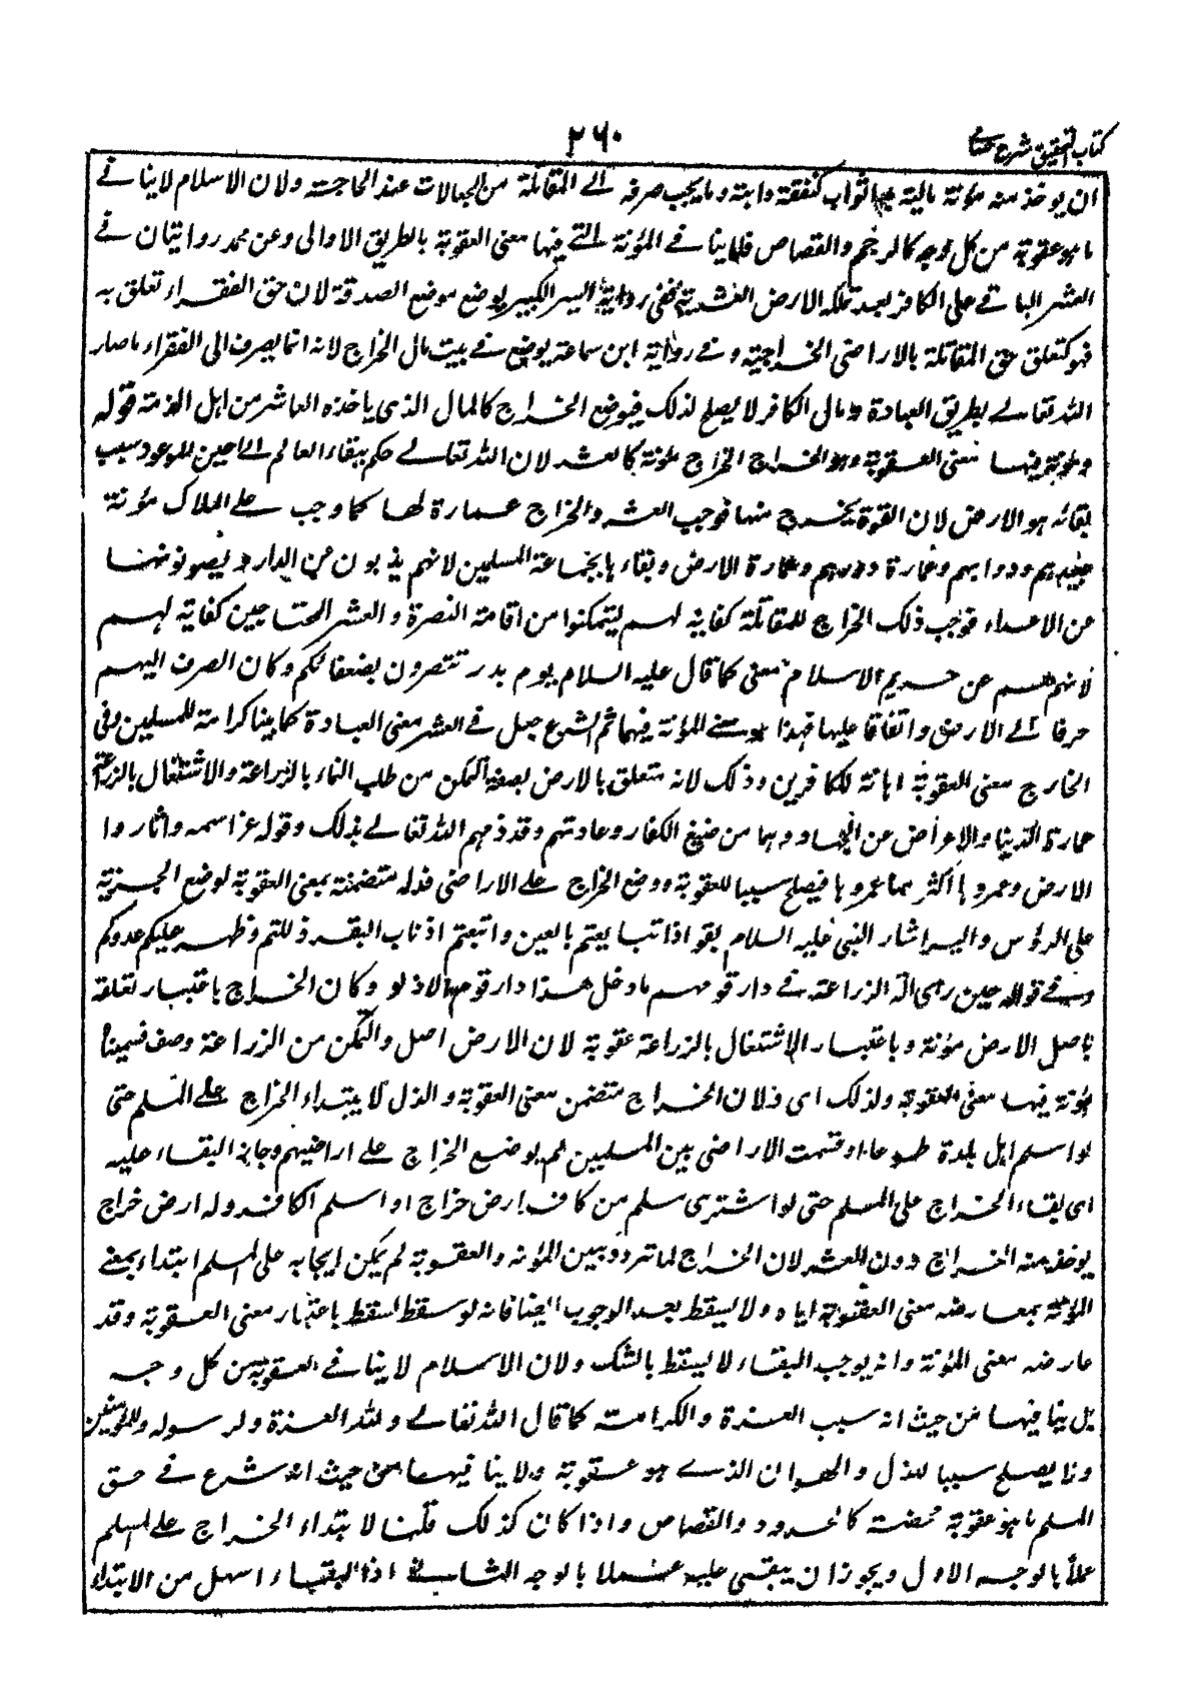 كتاب التحقيق شرح حسامى
٢٦٠
ان يوخذ منه مؤنة مالية فيها ثواب كنفقة دابته وما يجب صرفه الى المقاتلة من الجعالات عند الحاجة ولان الاسلام لا ينافى
ما هو عقوبة من كل وجه كالرجم والقصاص فلا ينافى المؤنة التى فيها معنى العقوبة بالطريق الاولى وعن محمد روايتان فى
العشر الباقى على الكافر بعد تملكه الارض العشرية ففى رواية السير الكبير يوضع موضع الصدقة لان حق الفقراء تعلق به
فهو كتعلق حق المقاتلة بالاراضى الخراجية وفى رواية ابن سماعة يوضع فى بيت مال الخراج لانه انما يصرف الى الفقراء ما صار
الله تعالى بطريق العبادة ومال الكافر لا يصلح لذلك فيوضع الخراج كالمال الذى ياخذه العاشر من اهل الذمة قوله
ومؤنة فيها معنى العقوبة وهو الخراج الخراج مؤنة كالعشر لان الله تعالى حكم ببقاء العالم الى الحين الموعود سبب
بقائه هو الارض لان القوة يخرج منها فوجب العشر والخراج عمارة لها كما وجب على الملاك مؤنة
عبيدهم ودوابهم وعمارة دورهم وعمارة الارض وبقاءها بجماعة المسلمين لانهم يذبون عن الدار ويصونونها
عن الاعداء فوجب ذلك الخراج للمقاتلة كفاية لهم ليتمكنوا من اقامة النصرة والعشر للمحتاجين كفاية لهم
لانهم هم عن حريم الاسلام معنى كما قال عليه السلام يوم بدر تنتصرون بضعفائكم وكان الصرف اليهم
صرفا الى الارض وانفاقا عليها فهذا هو معنى المؤنة فيهما ثم الشرع جعل فى العشر معنى العبادة كما بينا كرامة للمسلمين وفى
الخارج معنى العقوبة اهانة للكافرين وذلك لانه متعلق بالارض بصفة التمكن من طلب النماء بالزراعة والاشتغال بالزراعة
عمارة الدنيا والاعراض عن الجهاد وهما من صنيع الكفار وعادتهم وقد ذمهم الله تعالى بذلك وقوله عز اسمه واثاروا
الارض وعمروها أكثر مما عمروها فيصلح سببا للعقوبة ووضع الخراج على الاراضى فذله متضمنة بمعنى العقوبة لوضع الجزية
على الرؤس واليه اشار النبى عليه السلام بقو اذا تبايعتم بالعين واتبعتم اذناب البقر ذللتم وظهر عليكم عدوكم
وفى قوله حين رأى الة الزراعة فى دار قوم ما دخل هذا دار قوم الا ذلوا وكان الخراج باعتبار تعلقه
باصل الارض مؤنة وباعتبار الاشتغال بالزراعة عقوبة لان الارض اصل والتمكن من الزراعة وصف فسميناه
مؤنة فيها معنى العقوبة ولذلك اى فلان الخراج متضمن معنى العقوبة والذل لا يبتداء الخراج على المسلم حتى
لو اسلم اهل بلدة طوعا او قسمت الاراضى بين المسلمين لم يوضع الخراج على اراضيهم وجاز البقاء عليه
اى بقاء الخراج على المسلم حتى لو اشترى مسلم من كافر ارض خراج او اسلم الكافر وله ارض خراج
يوخذ منه الخراج دون العشر لان الخراج لما تردد بين المؤنة والعقوبة لم يكن ايجابه على المسلم ابتداء بمعنى
المؤنة بمعارضه معنى العقوبة اياه ولا يسقط بعد الوجوب ايضا فانه لو سقط لسقط باعتبار معنى العقوبة وقد
عارضه معنى المؤنة وانه يوجب البقاء لا يسقط بالشك ولان الاسلام لا ينافى العقوبة من كل وجه
بل ينافيها من حيث انه سبب العزة والكرامة كما قال الله تعالى ولله العزة ولرسوله وللمؤمنين
ونا يصلح سببا للذل والهوان الذى هو عقوبة ولا ينافيها من حيث انه شرع فى حق
المسلم ما هو عقوبة محضة كالحدود والقصاص واذا كان كذلك قلنا لا يبتداء الخراج على المسلم
عملا بالوجه الاول ويجوز ان يبقى عليه عملا بالوجه الثانى اذ البقاء اسهل من الابتداء